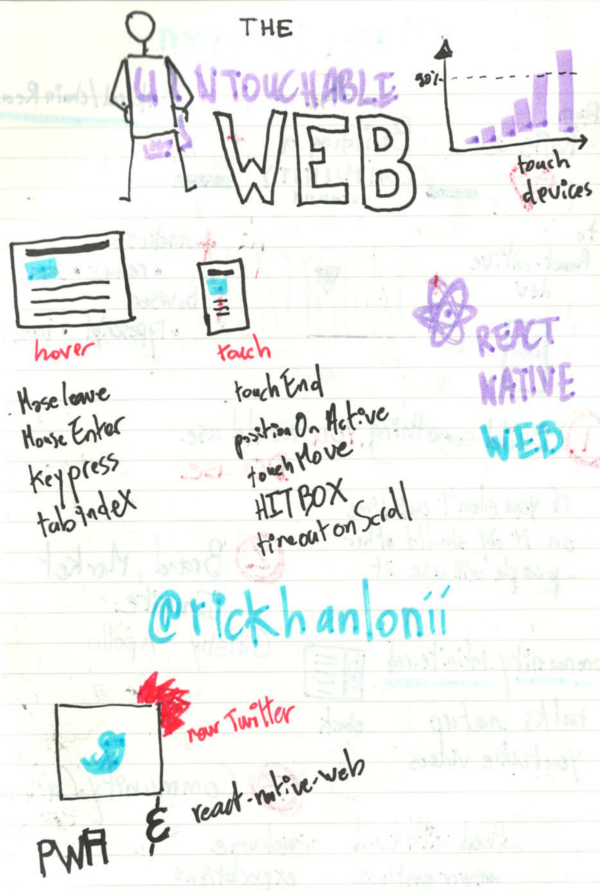 THE
UNTOUCHABLE
WEB
90%
touch
devices
hover
Moseleave
MouseEnter
keypress
tabindeX
touch
touchEnd
positionOnActive
touchMove
HITBOX
timeoutonScroll
REACT
NATIVE
WEB
@rickhanlonii
new Twitter
PWA & react-native-web